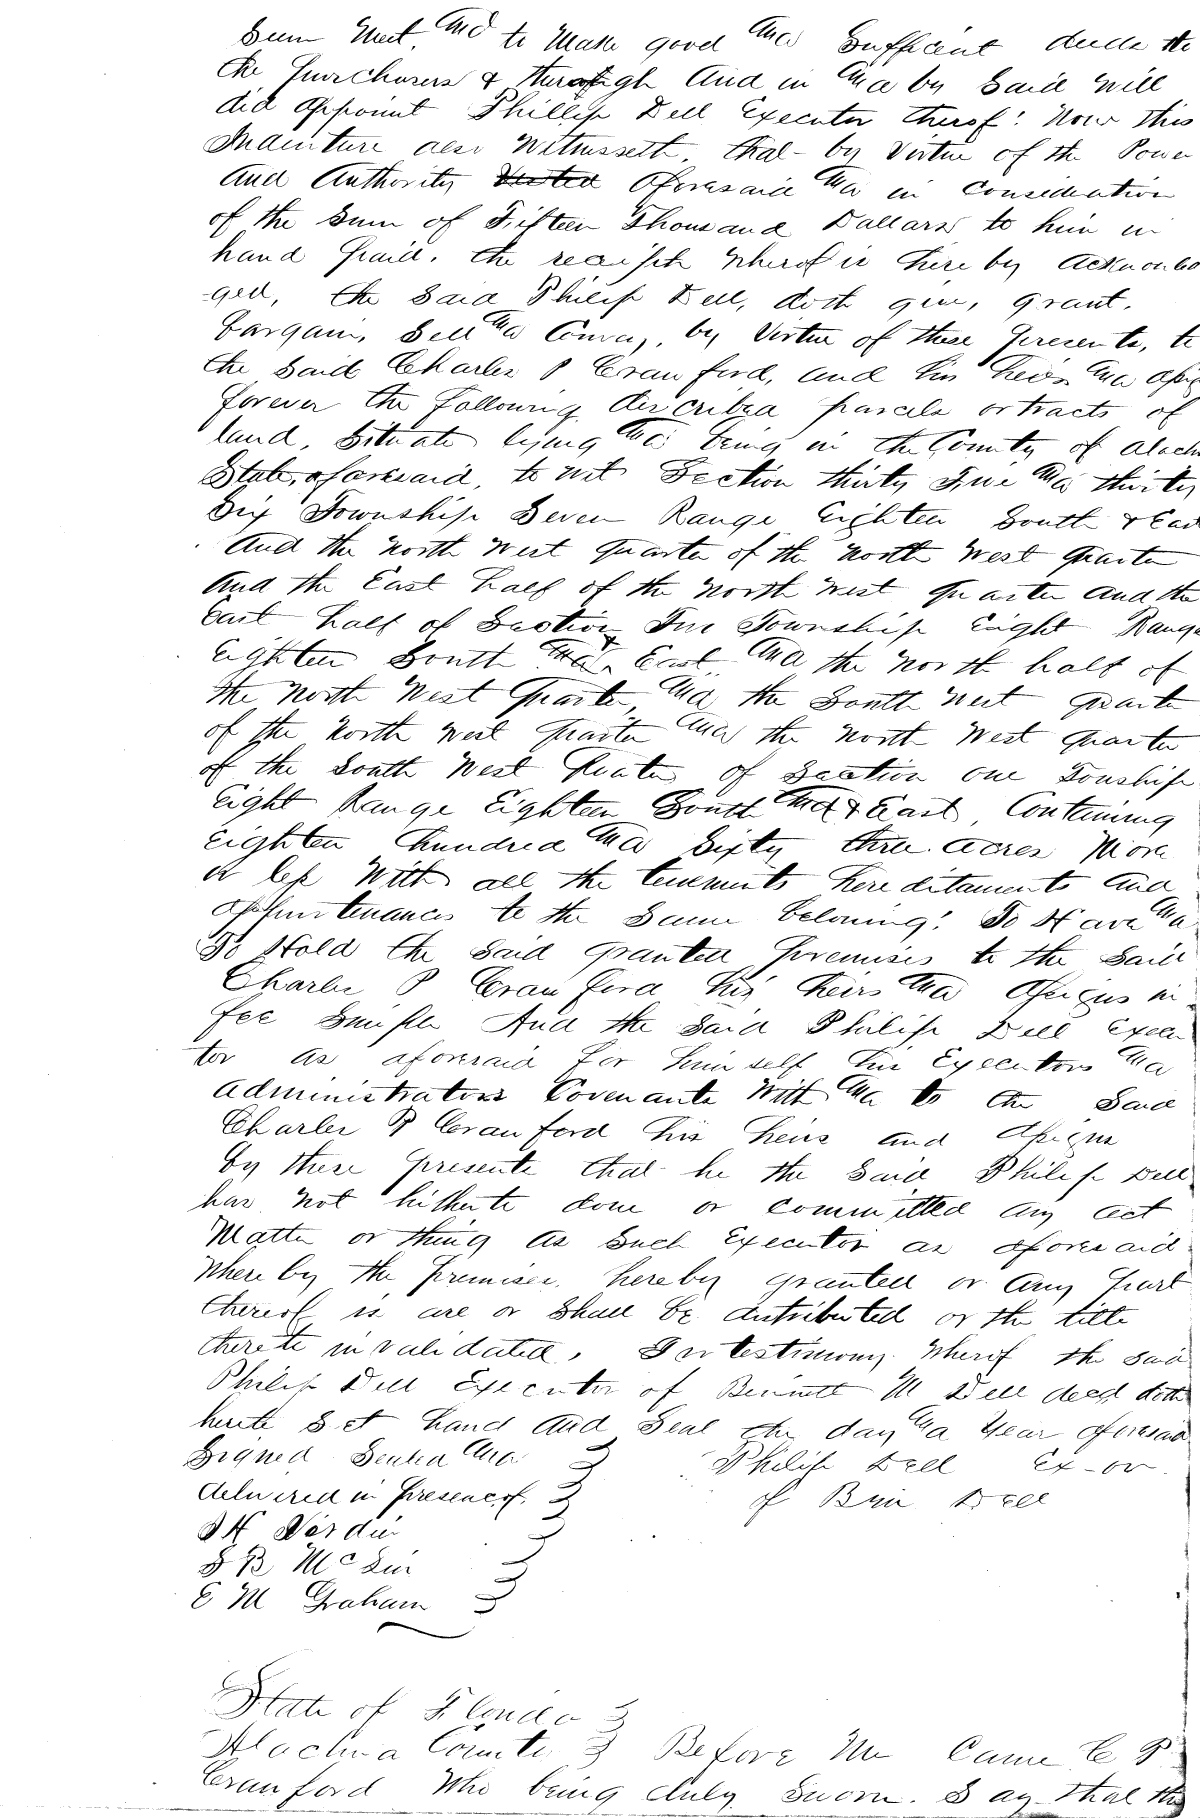 Seem Meet, And to Make good And Sufficient deeds to
the Purchasers & through And in And by Said Will
did appoint Phillip Dell Executor therof: Now this
Indenture also Witnesseth, that by Virtue of the Power
And Authority Vested aforesaid And in consideration
of the Sum of Fifteen Thousand Dallars to him in
hand paid, the receipt Wherof is here by Acknowled
-ged, the Said Philip Dell, doth give, grant,
bargain, Sell And Convey, by Virtue of these presents, to
the Said Charles P Crawford, and his heirs And assigns
forever the following described parcels or tracts of
land, Situate lying And being in the County of Alach
State, aforesaid, to wit Section thirty Five And thirty
Six Township Seven Range Eighteen South & East
And the North West quarter of the North West quarter
And the East half of the North West quarter And the
East half of Section Two Township Eight Range
Eighteen South And & East And the North half of
the North West Quarter And the South West quarter
of the North West quarter And the North West quarter
of the South West Quater of Section one Tonship
Eight Range Eighteen South And & East, Contining
Eighteen hundred And Sixty three acres More
or less With all the tenements hereditaments And
appurtenances to the Same beloning: To Have And
To Hold the Said granted premises to the Said
Charles P Crawford his heirs And Assigns in
fee Simple And the Said Philip Dell Execu
tor as aforesaid for himself his Executors And
administrators Covenants With And to the Said
Charles P Crawford his heirs and assigns
by these presents that he the Said Philip Dell
has not hitherto done or committed any act
Matter or thing as Such Executor as aforesaid
Where by the premises hereby granted or Any part
thereof is are or Shall be distributed or the title
thereto invalidated, In testimony Wherof the Said
Philip Dell Executor of Bennett M Dell decd doth
hereto Set hand And Seal the day And Year aforesaid
Signed Sealed And Philip Dell Ex-or
delivered in presence of of Ben Dell
J H Verdier
S B McLin
E M Graham
State of Florida
Alachua County Before Me Came C P
Crawford Who being duly Sworn Say that the